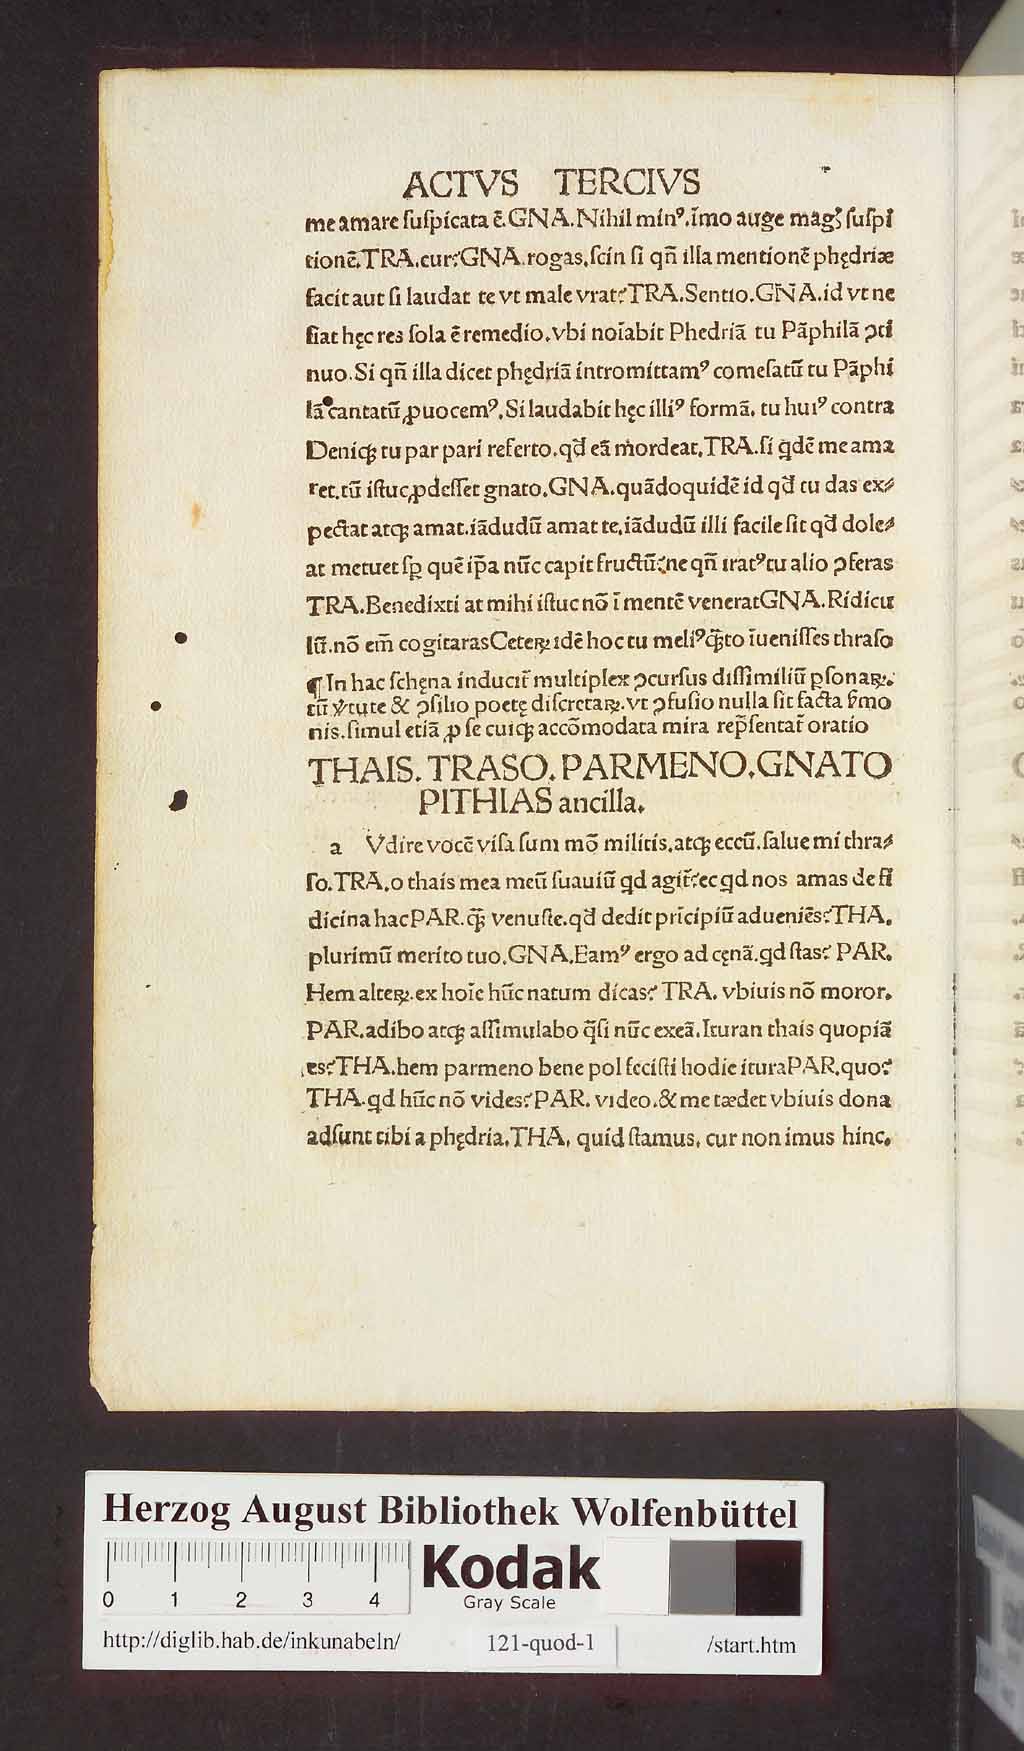 ACTVS TERCIVS
me amare ſuſpicata ē. GNA. Nihil minꝰ. īmo auge magꝫ ſuſpi
tionē. TRA. cur? GNA. rogas. ſcin ſi qn̄ illa mentionē phędriæ
facit aut ſi laudat te vt male vrat? TRA. Sentio. GNA. id vt ne
fiat hęc res ſola ē remedio. vbi noīabit Phedriā tu Pāphilā ꝯti
nuo. Si qn̄ illa dicet phędriā intromittamꝰ comeſatū tu Pāphi
lā cantatū ꝓuocemꝰ. Si laudabit hęc illiꝰ formā. tu huiꝰ contra
Deniqꝫ tu par pari referto. qd̄ eā mordeat. TRA. ſi qdē me ama
ret. tū iſtuc ꝓdeſſet gnato. GNA. quādoquidē id qd̄ tu das ex⸗
pectat atqꝫ amat. iādudū amat te. iādudū illi facile fit qd̄ dole⸗
at metuet ſꝑ quē ip̄a nūc capit fructū: ne qn̄ iratꝰ tu alio ꝯferas
TRA. Benedixti at mihi iſtuc nō ī mentē venerat GNA. Ridicu
lū. nō em̄ cogitaras Ceteꝝ idē hoc tu meliꝰ q̄to īueniſſes thraſo
¶ In hac ſchęna inducit᷑ multiplex ꝯcurſus diſſimiliū ꝑſonaꝝ.
tū v̓tute & ꝯſilio poetę diſcretaꝝ. vt ꝯfuſio nulla ſit facta ẜmo
nis. ſimul etiā ꝓ ſe cuiqꝫ accōmodata mira rep̄ſentat᷑ oratio
THAIS. TRASO. PARMENO. GNATO
PITHIAS ancilla.
a Vdire vocē viſa ſum mō militis. atqꝫ eccū. ſalue mi thra⸗
ſo. TRA. o thais mea meū ſuauiū qd agit᷑? ecqd nos amas de fi
dicina hac PAR. q̄ꝫ venuſte. qd̄ dedit prīcipiū adueniēs? THA.
plurimū merito tuo. GNA. Eamꝰ ergo ad cęnā. qd ſtas? PAR.
Hem alteꝝ. ex hoīe hūc natum dicas? TRA. vbiuis nō moror.
PAR. adibo atqꝫ aſſimulabo q̄ſi nūc exeā. Ituran thais quopiā
es? THA. hem parmeno bene pol feciſti hodie itura PAR. quo?
THA. qd hūc nō vides? PAR. video. & me tædet vbiuis dona
adſunt tibi a phędria. THA. quid ſtamus. cur non imus hinc.
Herzog August Bibliothek Wolfenbüttel
0 1 2 3 4
Kodak
Gray Scale
http://diglib.hab.de/inkunabeln/ 121-quod-1 /start.htm